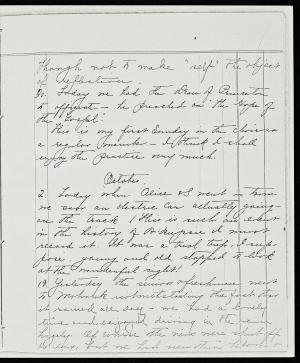 though not to make "self" the object
of reflection.
Today we had the Dean of Princeton
to officiate – he preached on "the Hope of
the Gospel."
This is my first Sunday in the choir as
a regular member – I think I shall
enjoy the practice very much.
October.
2. Today when Alice & I went – town
we saw an electric car actually going
on the track! This is such an event
in the history of Po'keepsie I must
record it. It was a trial trip, I sup-
pose, young and old stopped to look
at the wonderful sight!
Yesterday the senior & freshmen went
to Mohonk notwithstanding the fact that
it rained all day – we had a lovely
time and enjoyed driving in the rain
hugely. Of course the views were shut off